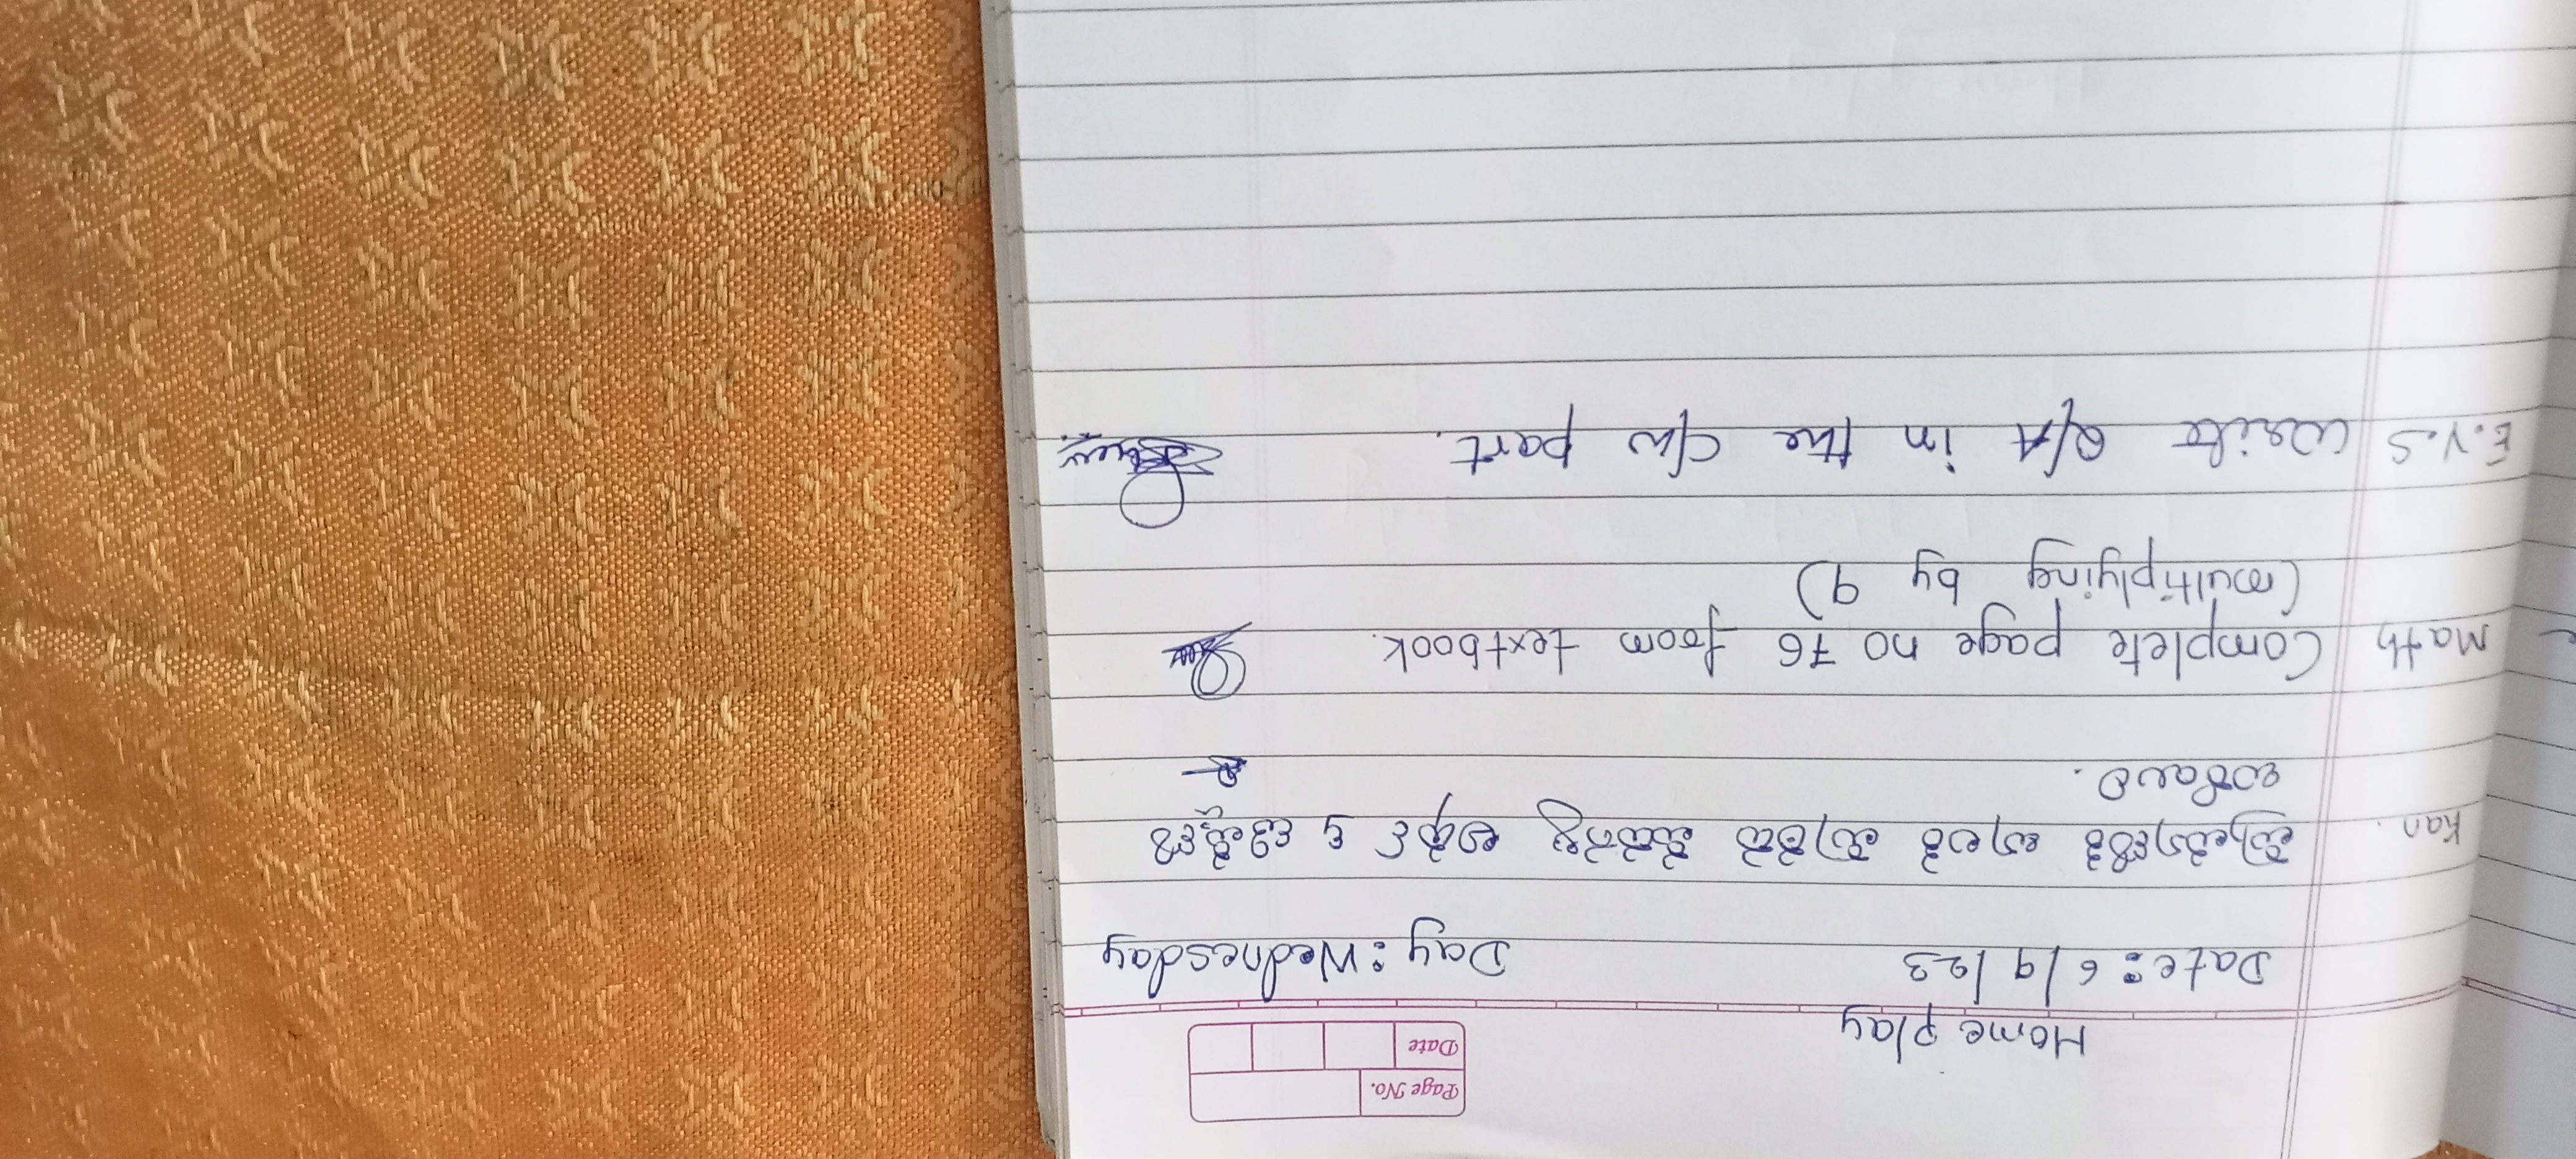 Page No.
Date
Home play
Date: 6/9/23 Day: Wednesday
Kan. ಪದಗಳ ಅರ್ಥ
ಬರೆಯಿರಿ.
Math Complete page no 76 from textbook.
(multiplying by 9)
E.V.S Write Q/A in the C/W part.